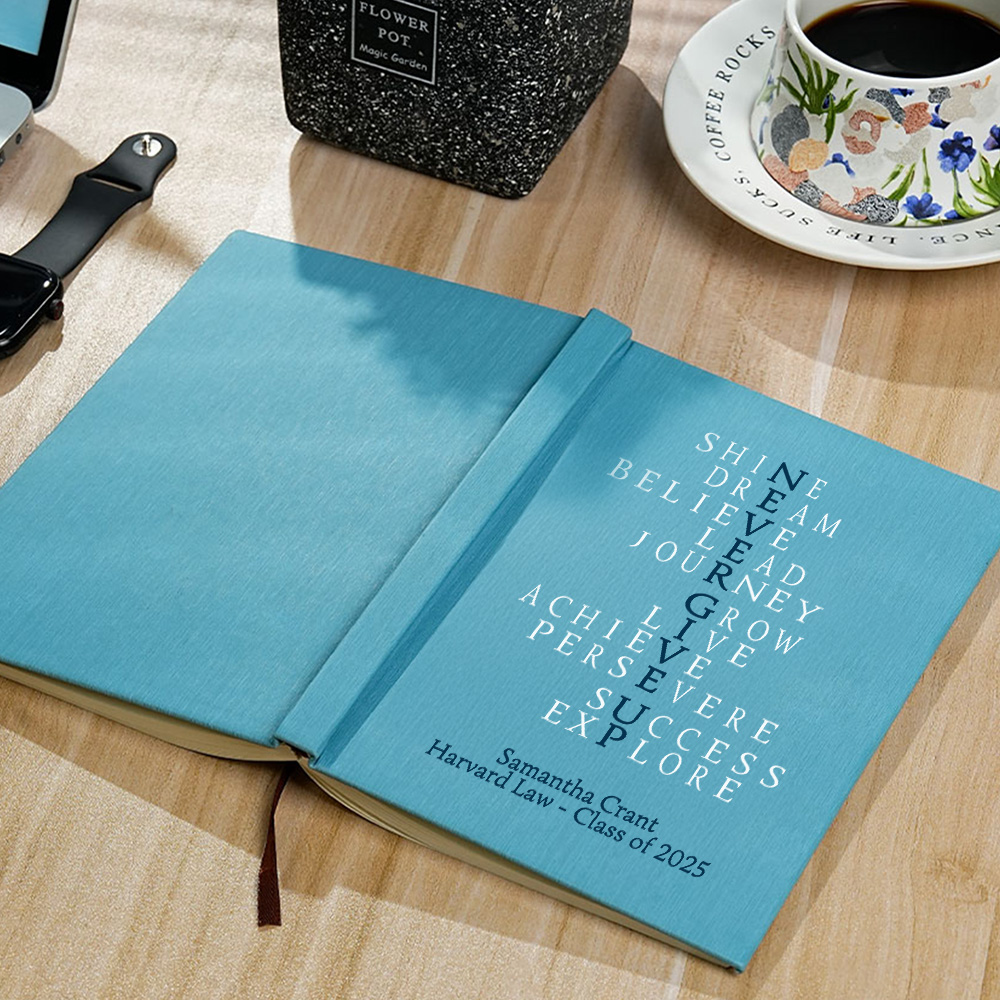 FLOWER
POT.
Magic Garden
COFFEE ROCKS
LIFE SUCKS.
SHINE
DREAM
BELIEVE
LEAD
JOURNEY
GROW
LIVE
ACHIEVE
PERSEVERE
SUCCESS
EXPLORE
Samantha Crant
Harvard Law - Class of 2025